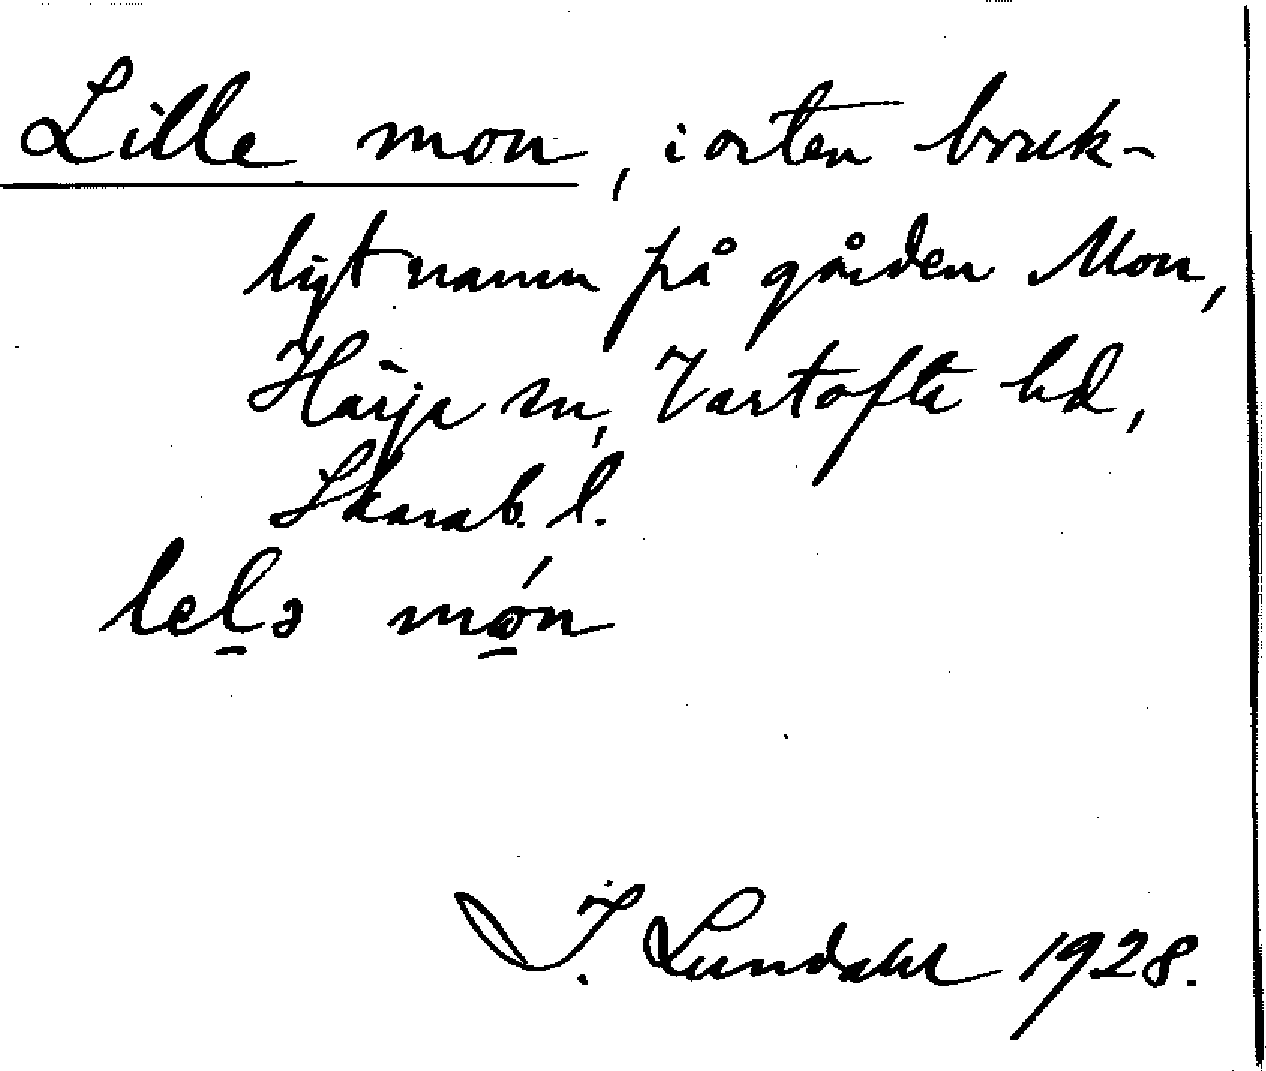 Lille mon, i orten bruk-
ligt namn på gården Mon,
Härja sn, Vartofta hd,
Skarab. l.
lelə món
I. Lundahl 1928.